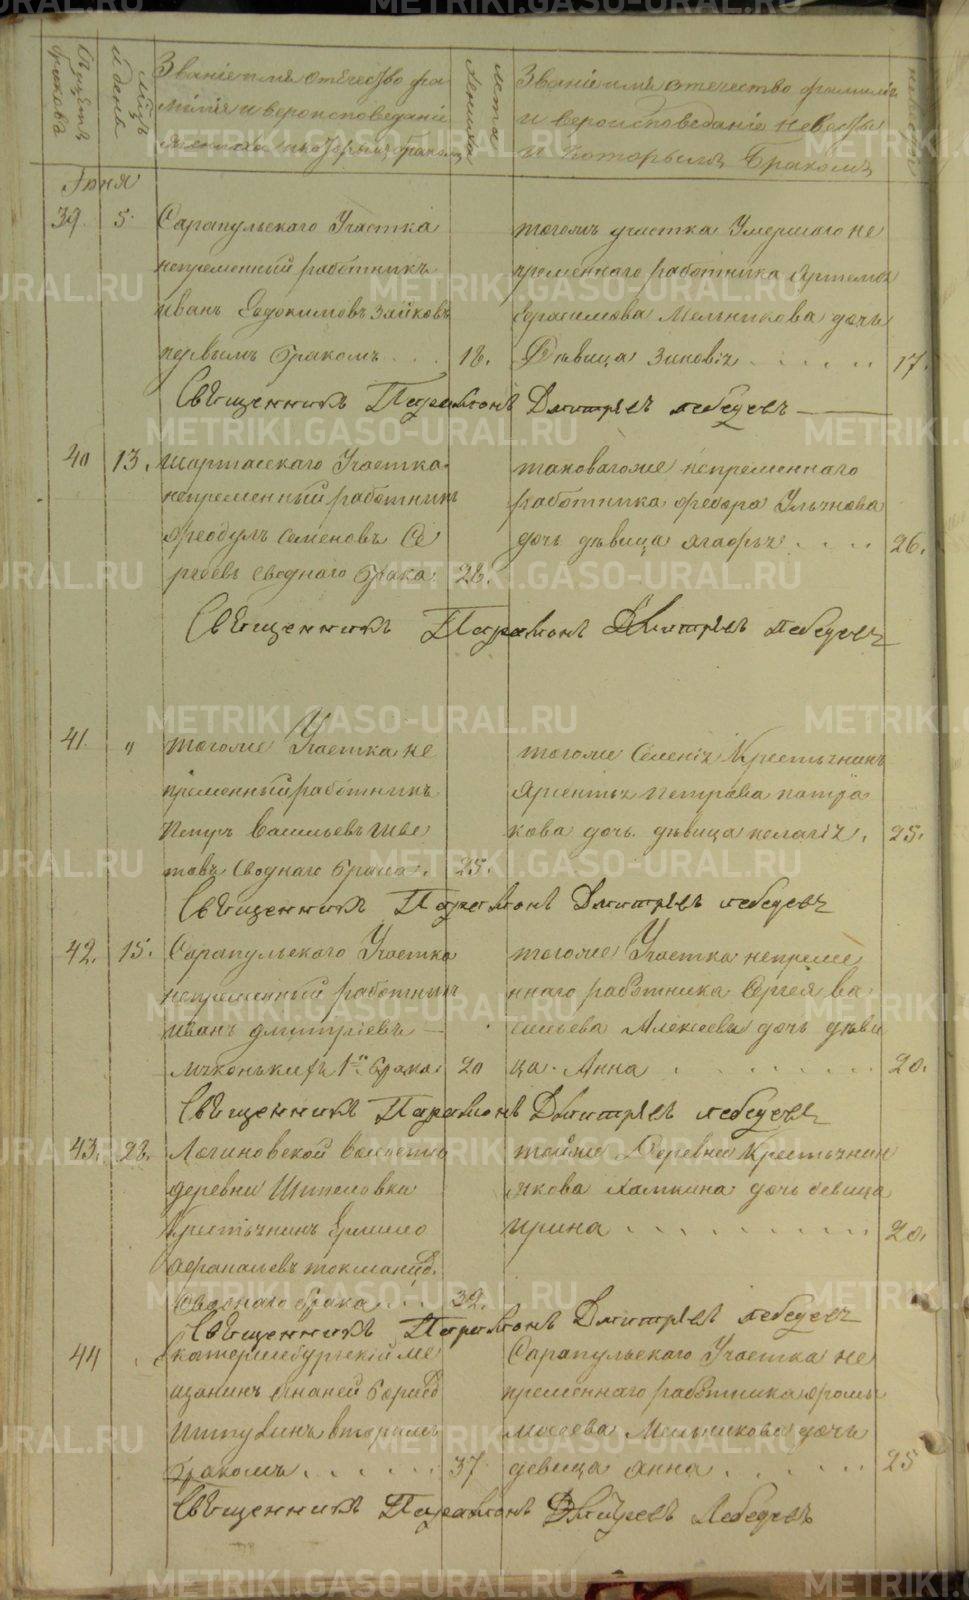 Счетъ браковъ
мцъ и день
Званіе имя отечество фа
миліи и вероисповеданіе
жениха и которымъ бракомъ
лета жениха
Званіе имя отечество фамилія
и вероисповеданіе невесты
и которымъ Бракомъ
невесты
Іюня
39. 5. Сарапульскаго Участка
непременный работникъ
Иванъ Евдокимовъ Зяйковъ
первымъ бракомъ . . . 18.
тогожъ участка Умершаго не
пременнаго работника Артемья
Герасимова Мельникова дочь
Девица Зиновія . . . . . . 17.
Священникъ Парамонъ Дмитріевъ Лебедевъ
40 13. Шарташскаго Участка
непременный работникъ
Феодулъ Семеновъ Се
ргеевъ сводного брака. 28.
таковагоже непременнаго
работника Федора Ульянова
дочь девица Агафья . . . . 26.
Священникъ Парамонъ Дмитріевъ Лебедевъ
41. " тогоже Участка не
пременный работникъ
Петръ Васильевъ Шве
товъ сводного брака. 25.
тогоже Селенія Крестьянина
Арсентья Петрова
кова дочь девица Пелагія. 25.
Священникъ Парамонъ Дмитріевъ Лебедевъ
42. 15. Сарапульскаго Участка
непременный работникъ
Иванъ Дмитріевъ
1м брака. 20
тогоже Участка непреме
ннаго работника Сергея Ва
сильева Алексеева дочь деви
ца Анна . . . . . . . 20.
Священникъ Парамонъ Дмитріевъ Лебедевъ
43. 23. Логиновской волости
деревни Шипеловки
Крестьянинъ Ермило
Афанасьевъ
сводного брака . . . 32.
тойже Деревни Крестьянина
Якова Хамкина дочь девица
Ирина . . . . . . . . . 20.
Священникъ Парамонъ Дмитріевъ Лебедевъ
44 Екатеринбургскій ме
щанинъ Ананей Борисов
вторымъ
бракомъ . . . . . . 37
Сарапульскаго Участка не
пременнаго работника Фомы
Мосеева Мельникова дочь
девица Анна . . . . . . 25
Священникъ Парамонъ Дмитріевъ Лебедевъ
METRIKI.GASO-URAL.RU